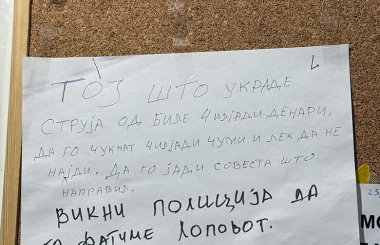 ТОЈ ШТО УКРАДЕ
СТРУЈА ОД БИЛЕ ЧИЛЈАДИ ДЕНАРИ,
ДА ГО ЧУКНАТ ЧИЛЈАДИ ЧУМИ И ЛЕК ДА НЕ
НАЈДИ. ДА ГО ЈАДИ СОВЕСТА ШТО
НАПРАВИЛ.
ВИКНИ ПОЛИЦИЈА ДА
ГО ФАТИМЕ ЛОПОВОТ.